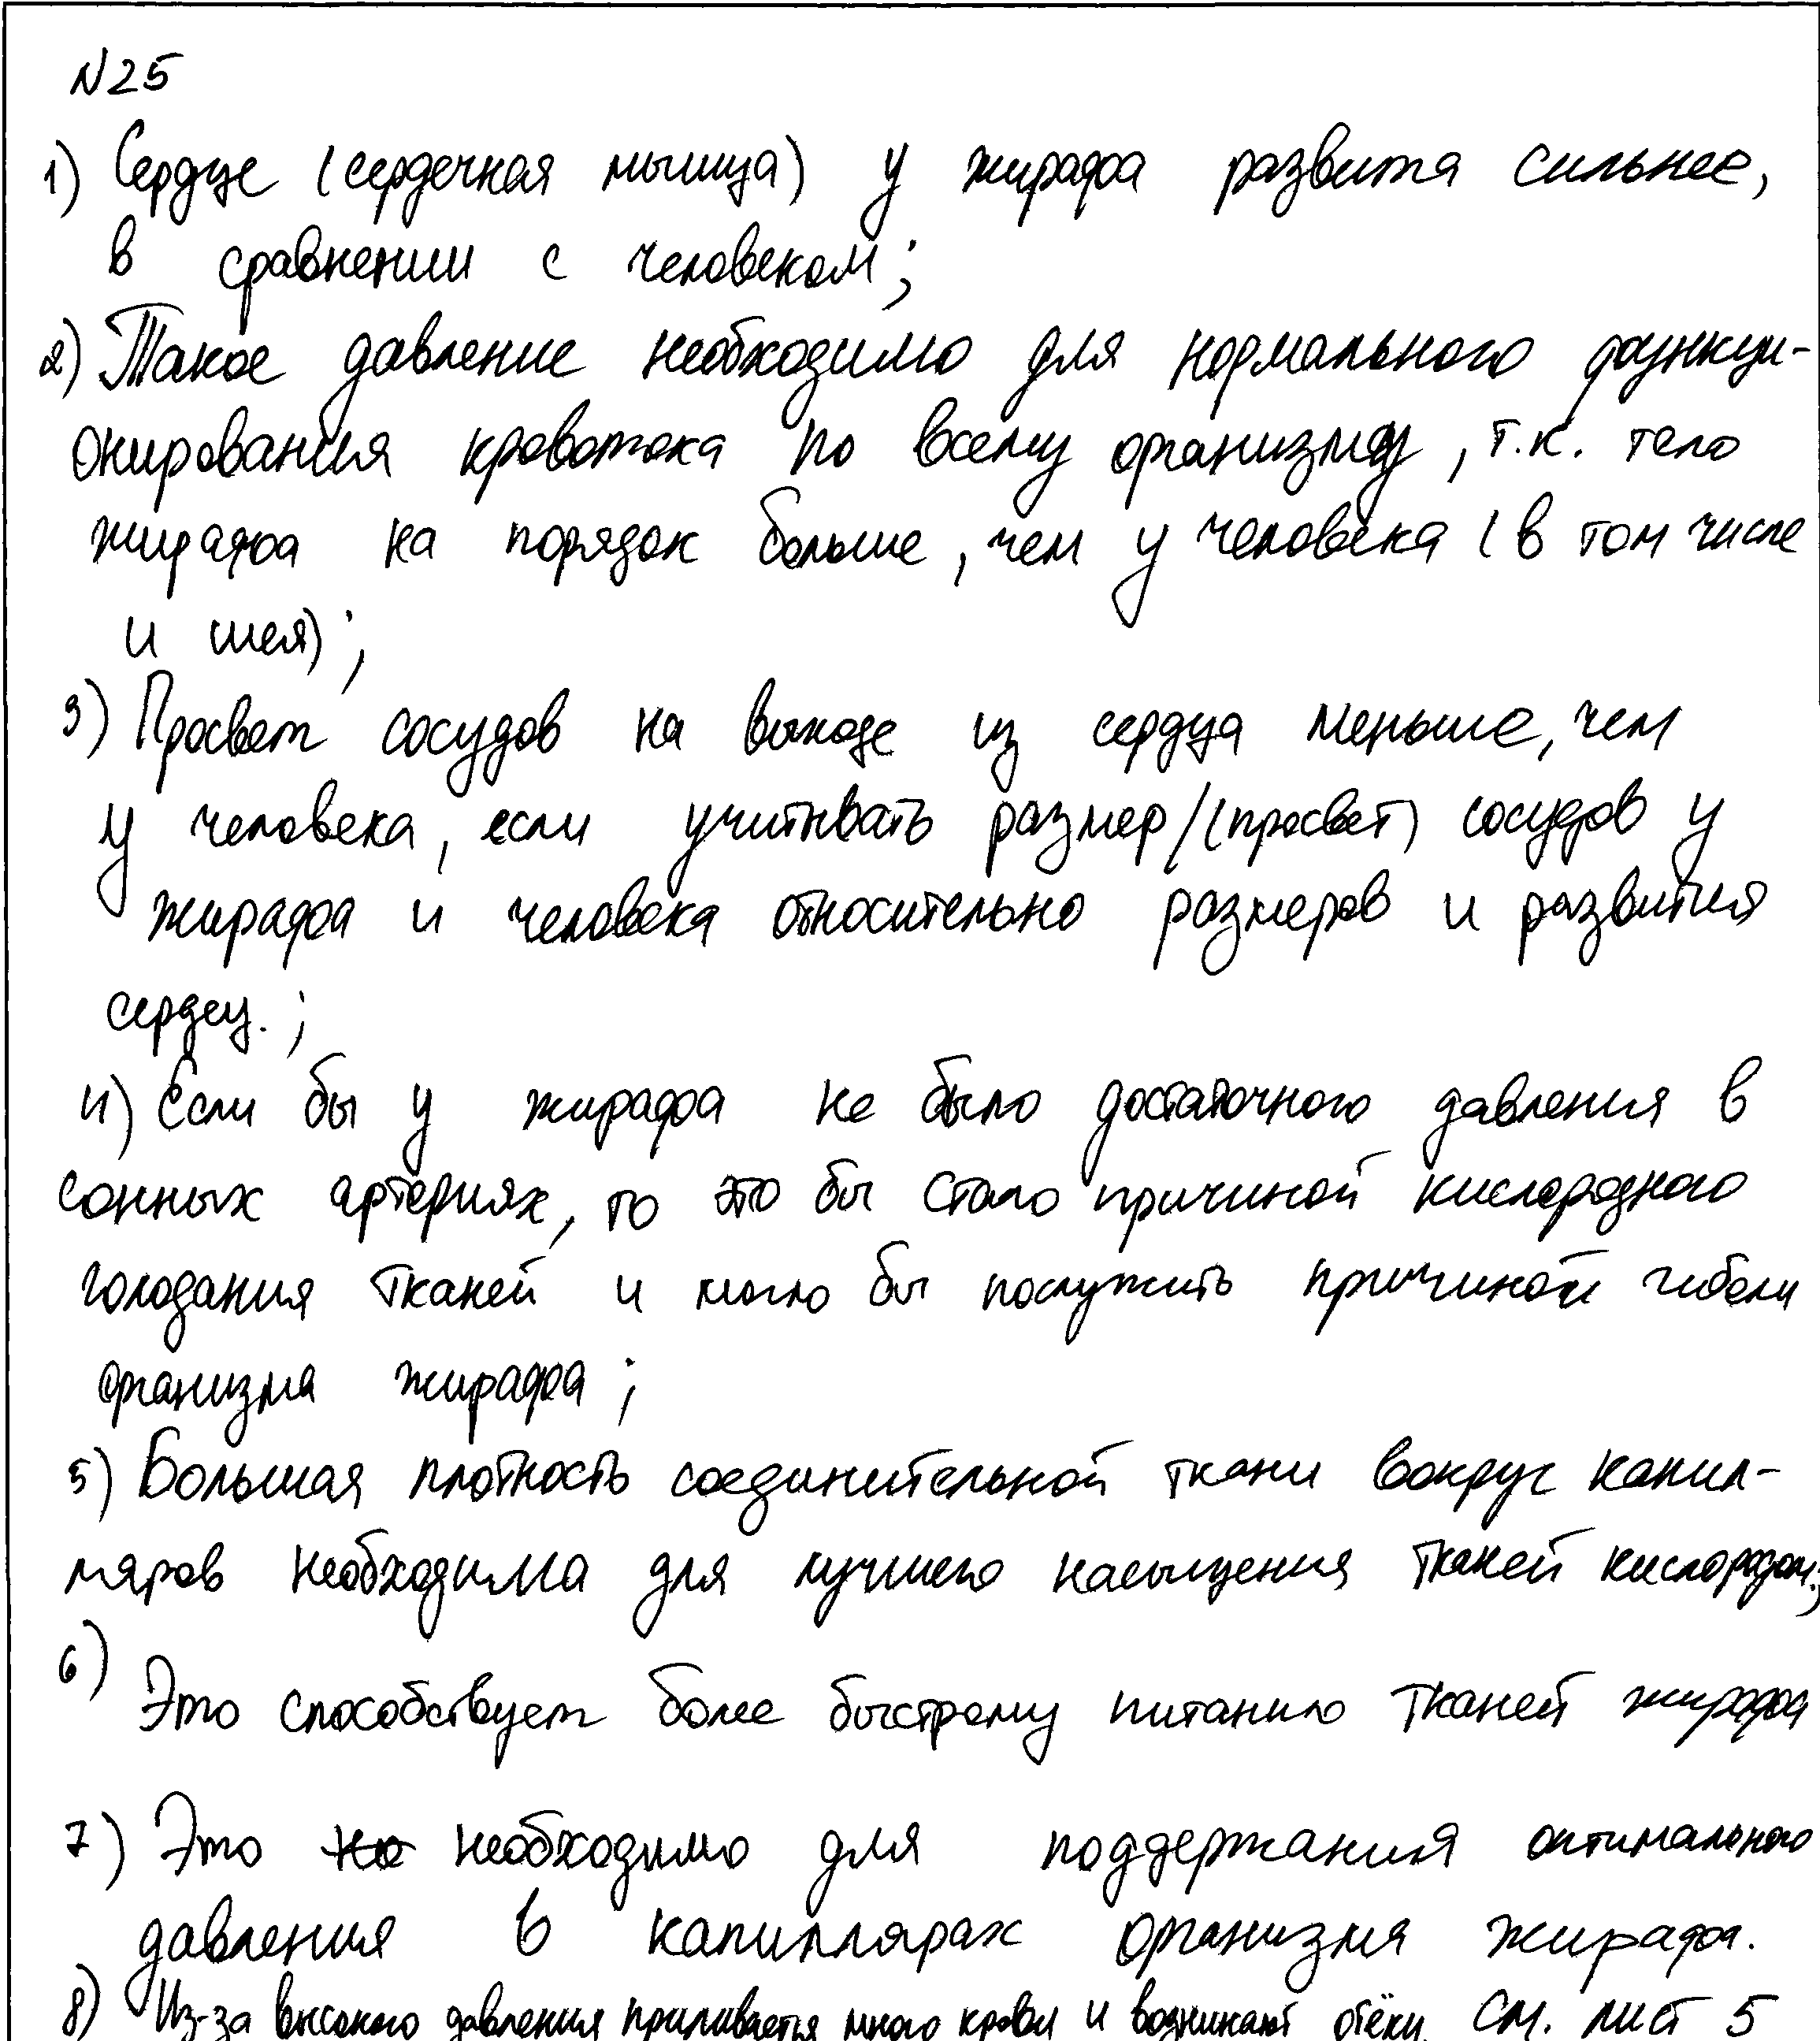 N25
1) Сердце (сердечная мышца) у жирафа развита сильнее,
в сравнении с человеком;
2) Такое давление необходимо для нормального функци-
онирования кровотока по всему организму, т.к. тело
жирафа на порядок больше, чем у человека (в том числе
и шея);
3) Просвет сосудов на выходе из сердца меньше, чем
у человека, если учитывать размер/(просвет) сосудов у
жирафа и человека относительно размеров и развития
сердец.;
4) Если бы у жирафа не было достаточного давления в
сонных артериях, то это бы стало причиной кислородного
голодания тканей и могло бы послужить причиной гибели
организма жирафа;
5) Большая плотность соединительной ткани вокруг капил-
ляров необходима для лучшего насыщения тканей кислородом.;
6)
Это способствует более быстрому питанию тканей жирафа
7) Это но необходимо для поддержания оптимального
давления в капиллярах организма жирафа.
8) Из-за высокого давления приливается много крови и возникают отёки. См. лист 5